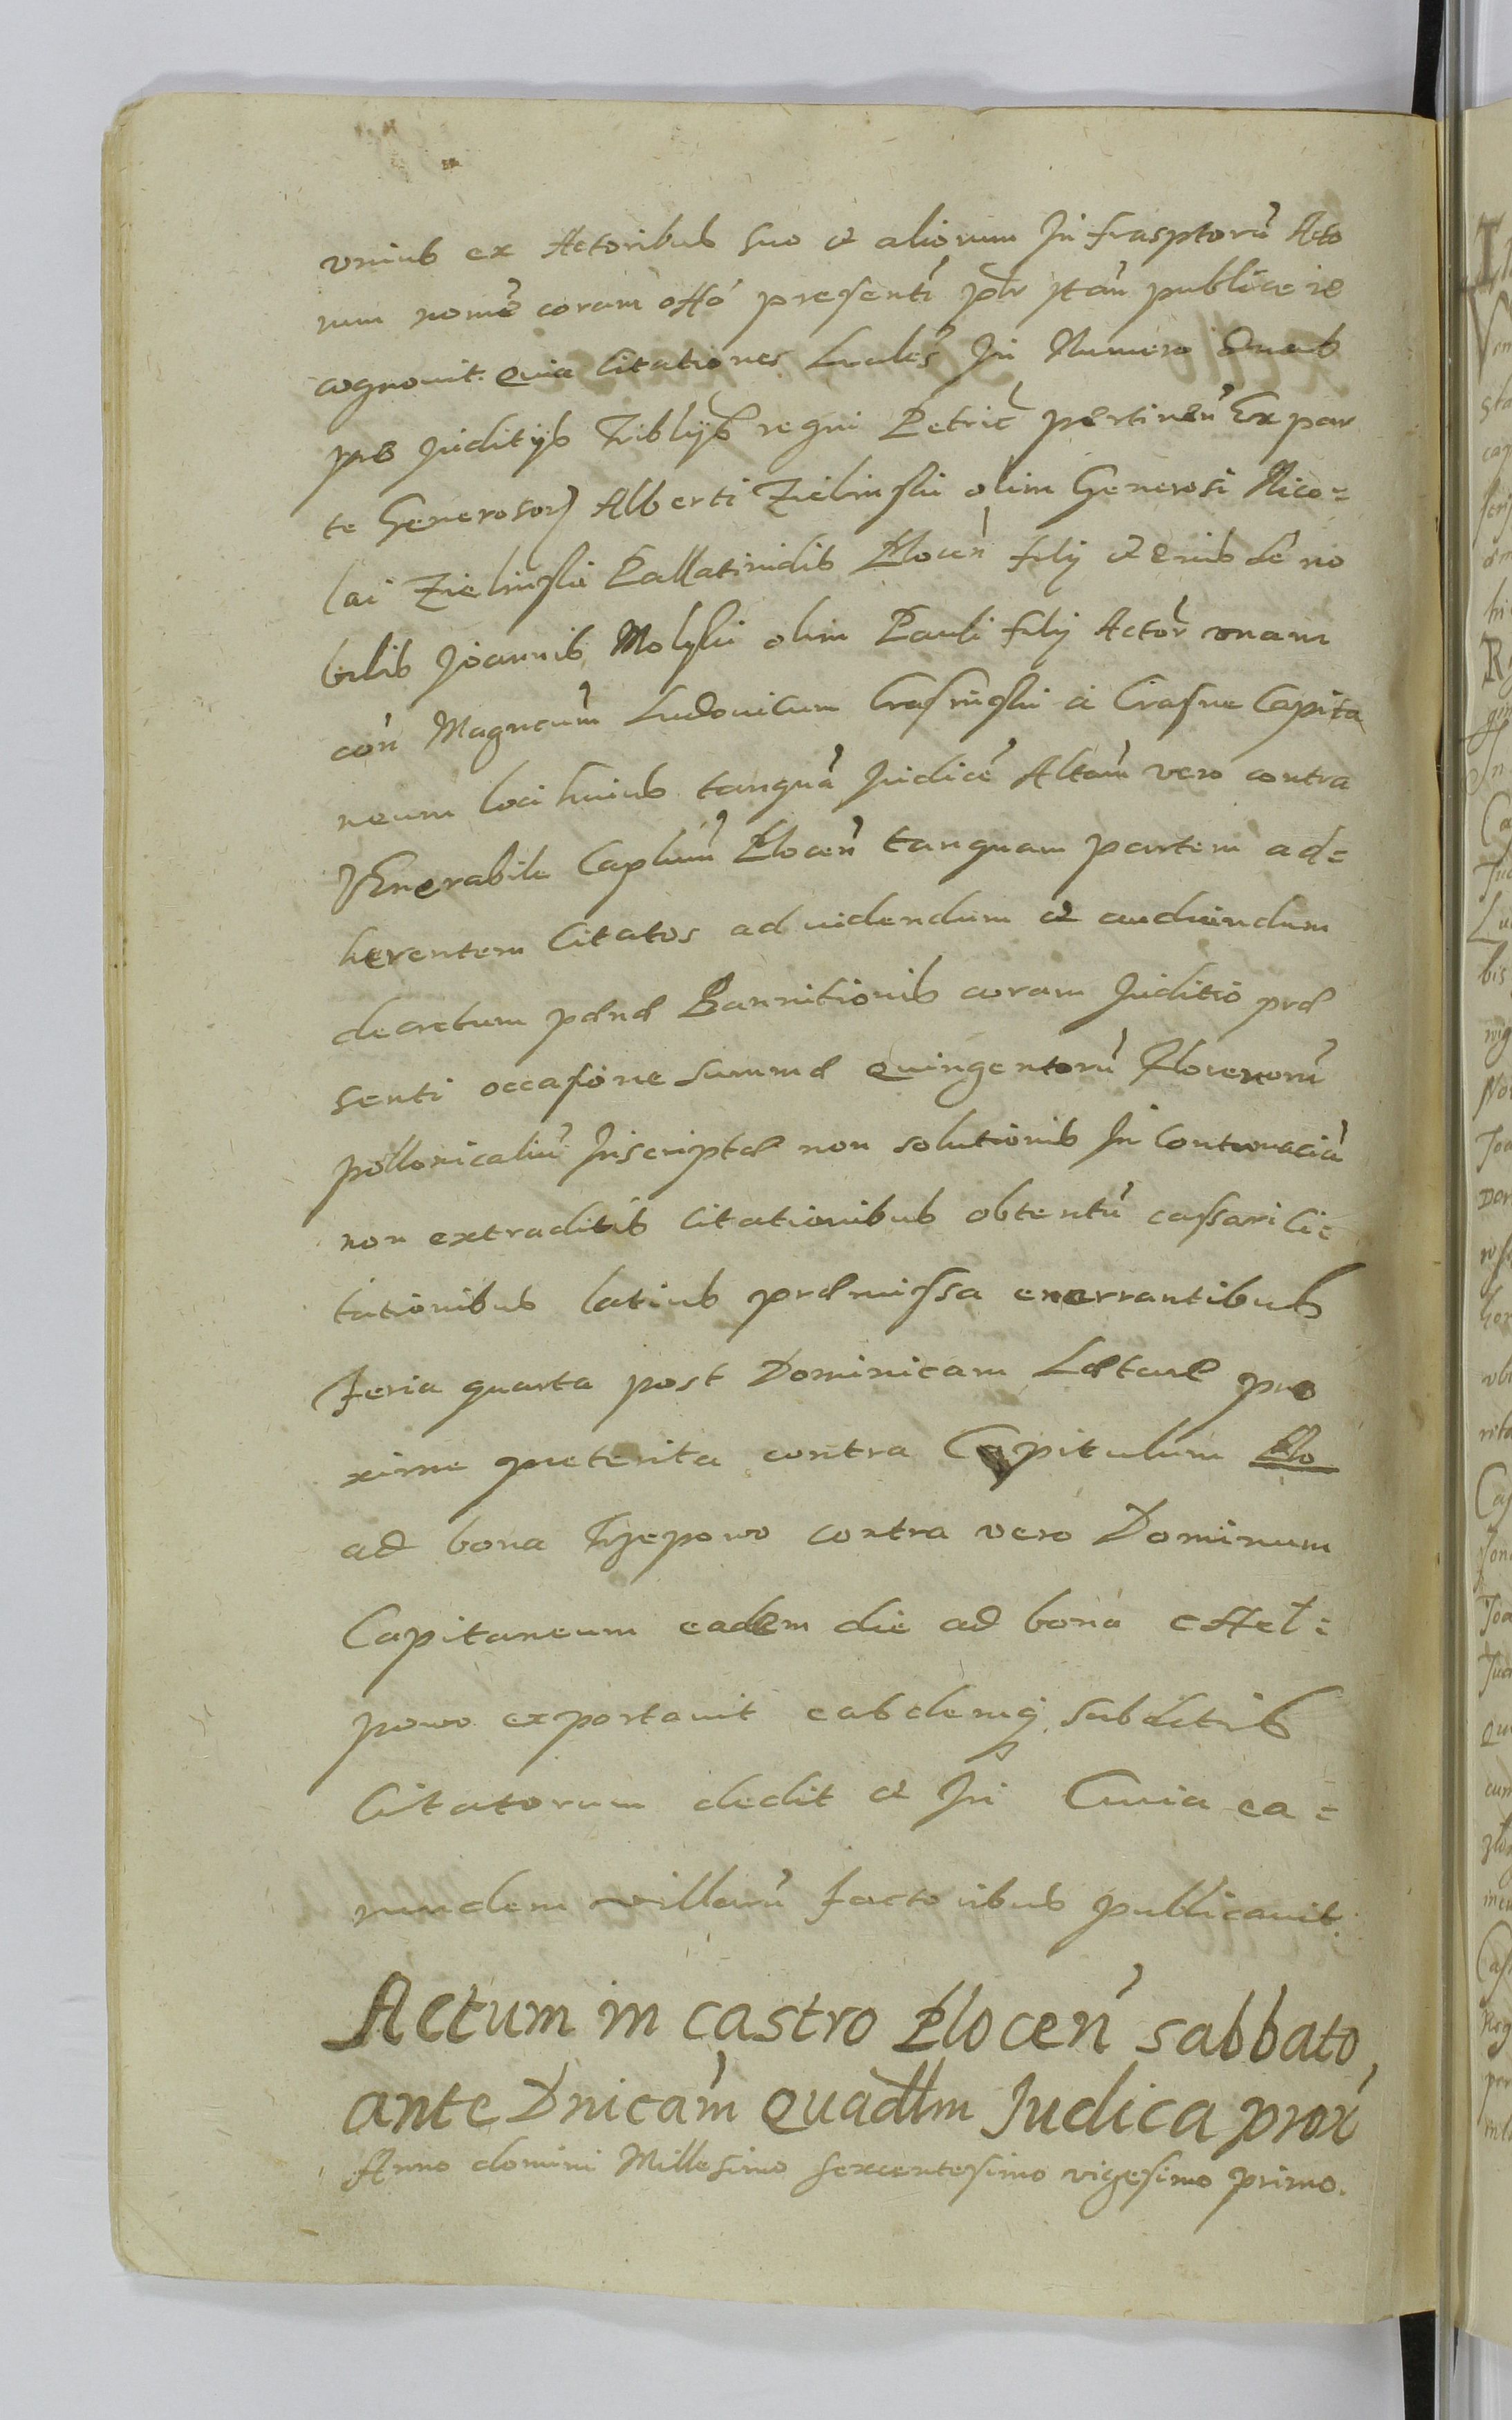 vnius ex Actoribus suo et aliorum Infrasptorũ Acto
rum nomẽ coram offõ presentĩ plr ittãm publice re
cognovit. Quia Citationes Lreales In Numero Duas
pro Juditijs Tribljb regni Petric pertineñ Ex par
te Generosor Alberti Zielinski olim Generosi Nico=
lai Zielinski Pallatinidis Plocen̄ filij et eius dẽ no
bilis Joannis Molski olim Pauli filij Actor̃ vnam
con̄ Magncum̄ Ludovicum Crasinski a Crasne Capita
neum loci huius tanquã Judicẽ Altam̄ vero contra
Venerabile Caplum̄ Plocen̄ tanquam partem ad=
herentem Citatos ad videndum et audiendum
decretum pænæ Bannitionis coram Juditio præ
senti occasione summæ Quingentorũ Florenorũ
pollonicaliũ Inscriptæ non solutionis In Contumaciã
non extraditis Citationibus obtentũ cassari Ci=
tationibus latius præmissa enarrantibus
Feria quarta post Dominicam Lætare pro
xime preterita contra Capitulum Plo
ad bona Trzepowo contra vero Dominum
Capitaneum eadem die ad bona Cheł=
powo exportavit easdemq subditis
Citatorum dedit et In Curia ea=
rundem villarũ factoribus publicavit.
Actum in castro Plocen̄ sabbato
ante Dnicam̄ Quadlm Judica prox̃
Anno domini Millesimo sexcentesimo vigesimo primo.